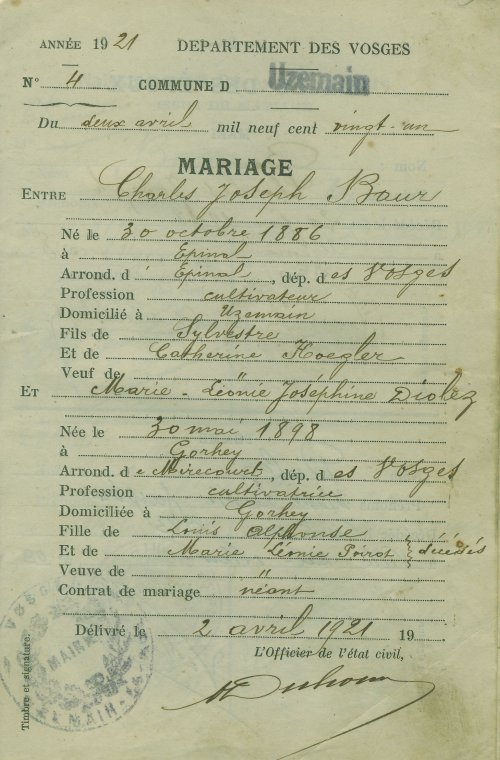 ANNÉE 1921 DEPARTEMENT DES VOSGES
N° 4 COMMUNE D Uzemain
Du deux avril mil neuf cent vingt-un
MARIAGE
ENTRE Charles Joseph Baur
Né le 30 octobre 1886
à Epinal
Arrond. d' Epinal, dép. des Vosges
Profession cultivateur
Domicilié à Uzemain
Fils de Sylvestre
Et de Catherine Koegler
Veuf de "
ET Marie-Léonie Joséphine Diolez
Née le 30 mai 1898
à Gorhey
Arrond. de Mirecourt, dép. des Vosges
Profession cultivatrice
Domiciliée à Gorhey
Fille de Louis Alphonse
Et de Marie Léonie Poirot } décédés
Veuve de "
Contrat de mariage néant
Délivré le 2 avril 1921 19
L'Officier de l'état civil,
Timbre et signature.
MAIRIE